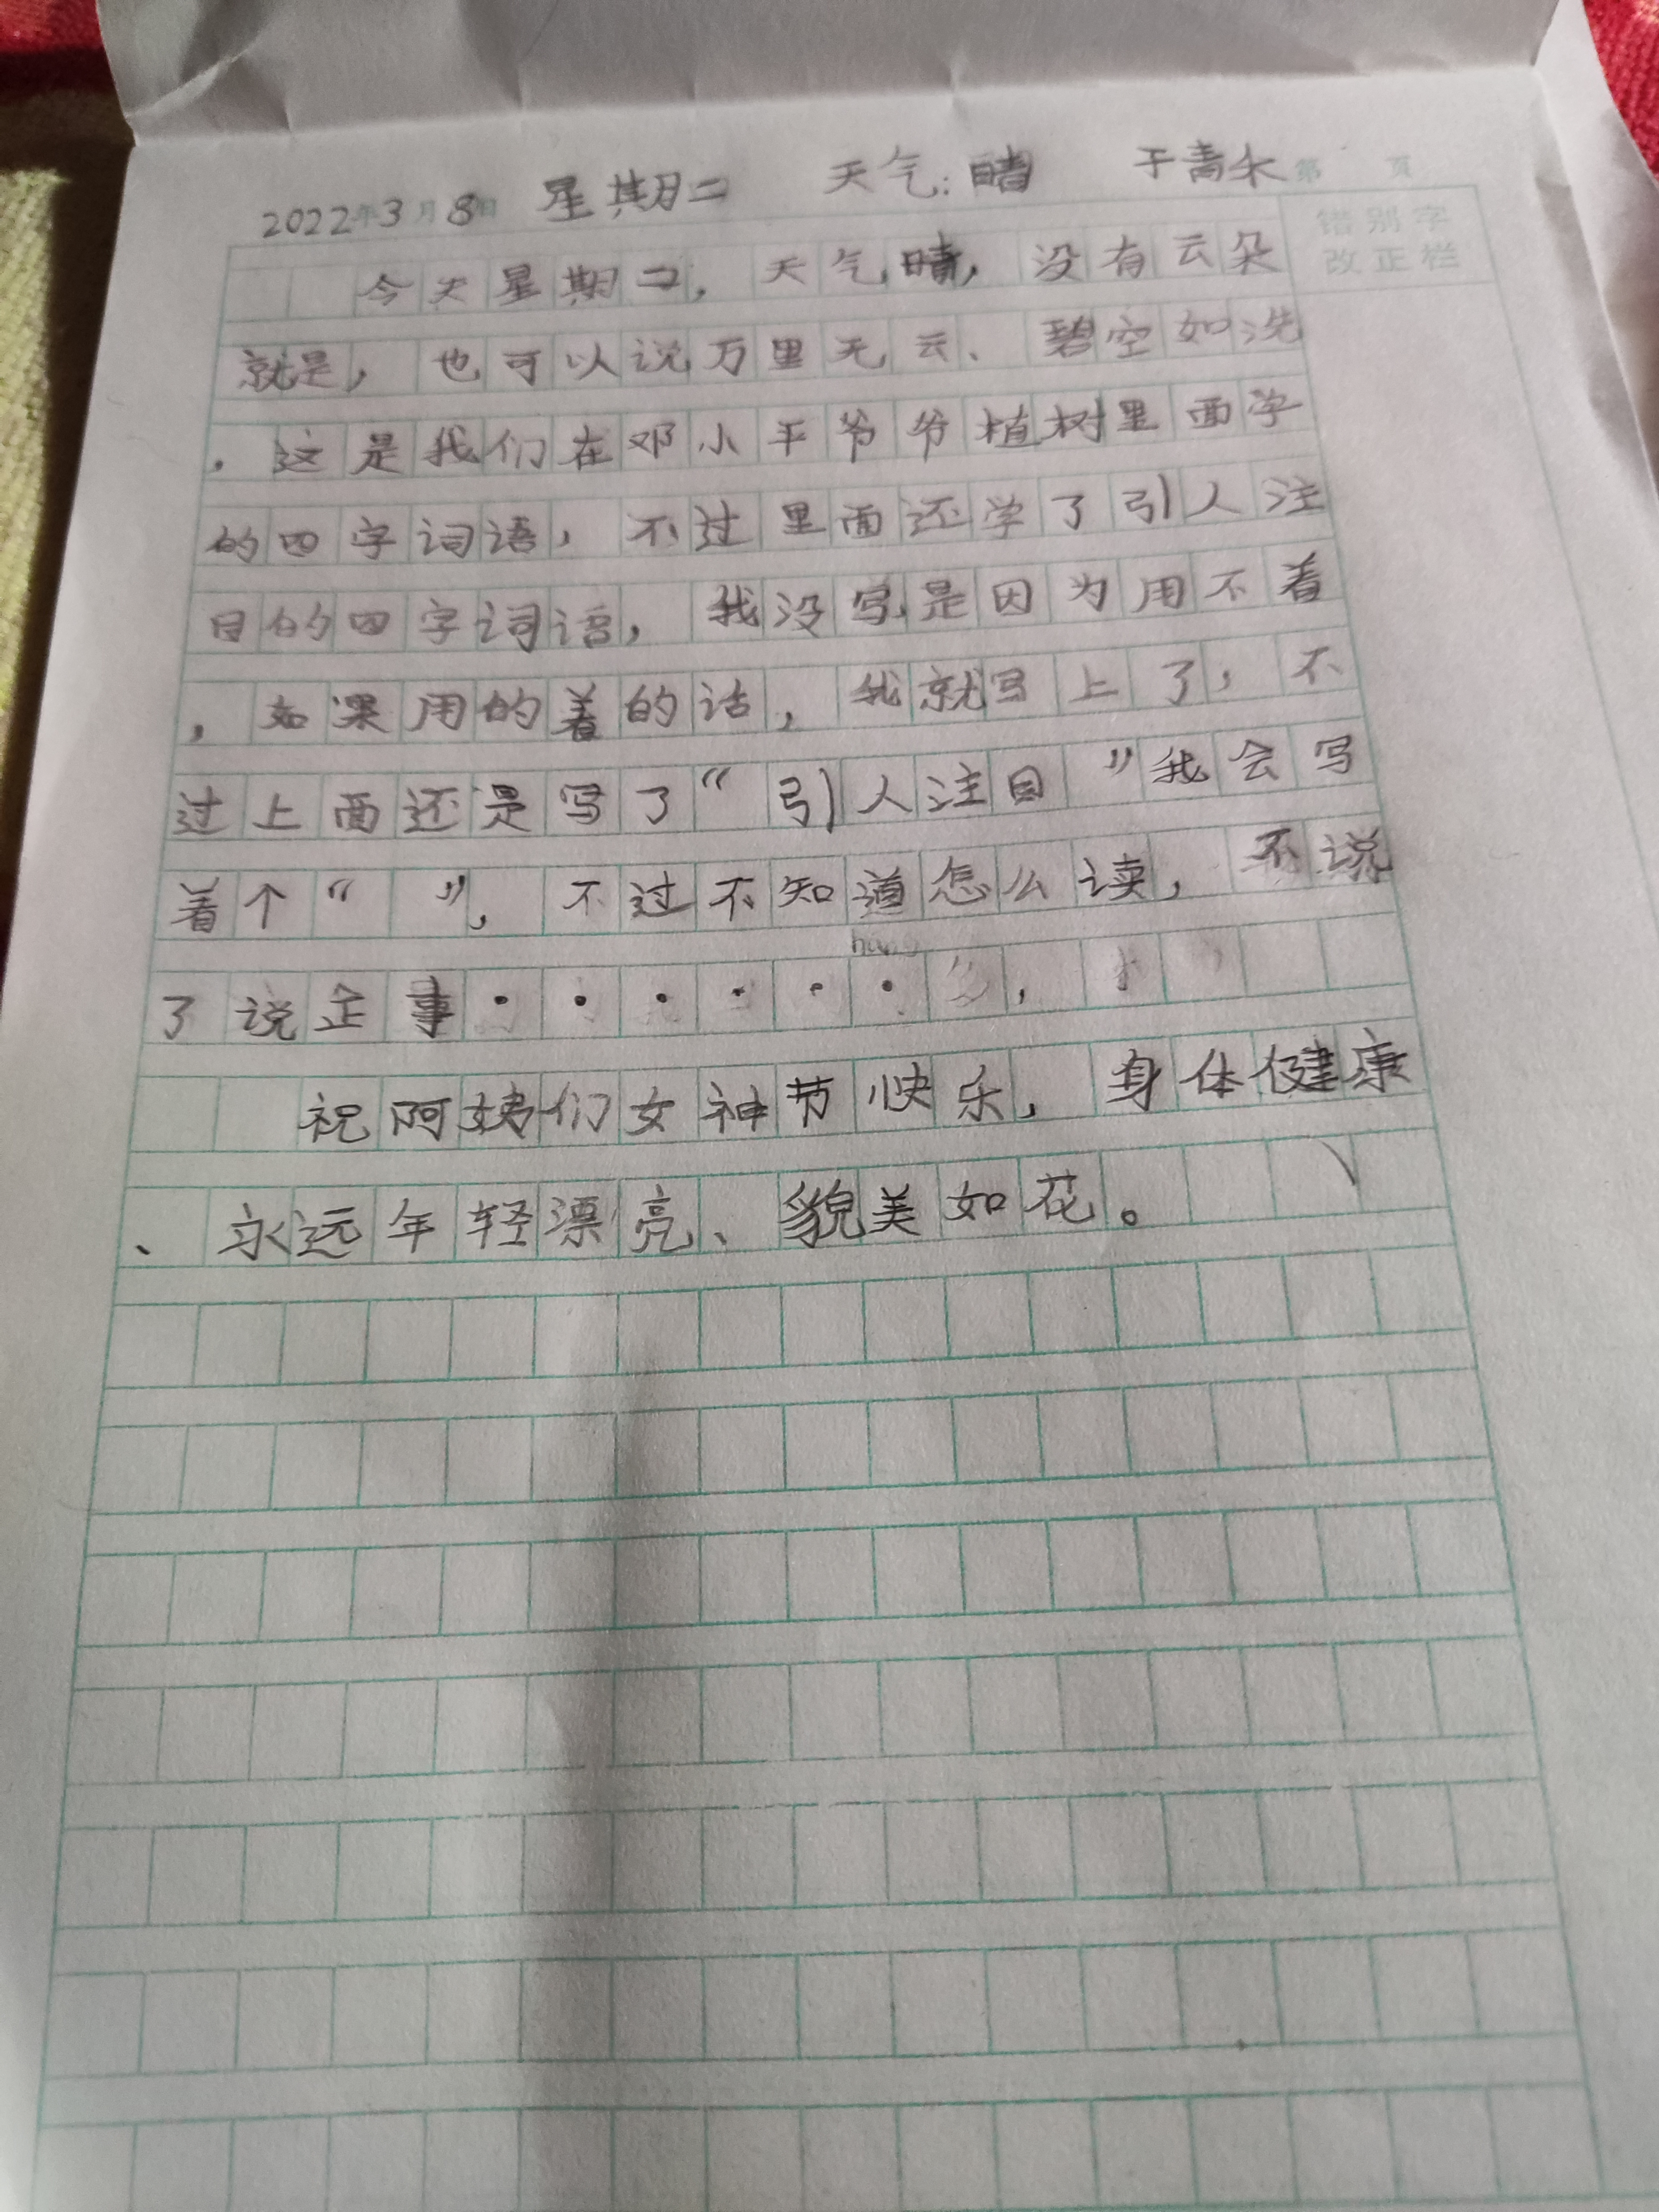 2022年3月8日 星期二 天气:晴 于青禾 第 页
错别字
改正栏
今天星期二,天气晴,没有云朵
就是,也可以说万里无云、碧空如洗
,这是我们在邓小平爷爷植树里面学
的四字词语,不过里面还学了引人注
目的四字词语,我没写是因为用不着
,如果用的着的话,我就写上了,不
过上面还是写了“引人注目”我会写
着个“ ”,不过不知道怎么读,不说
了说正事······,
祝阿姨们女神节快乐,身体健康
、永远年轻漂亮、貌美如花。